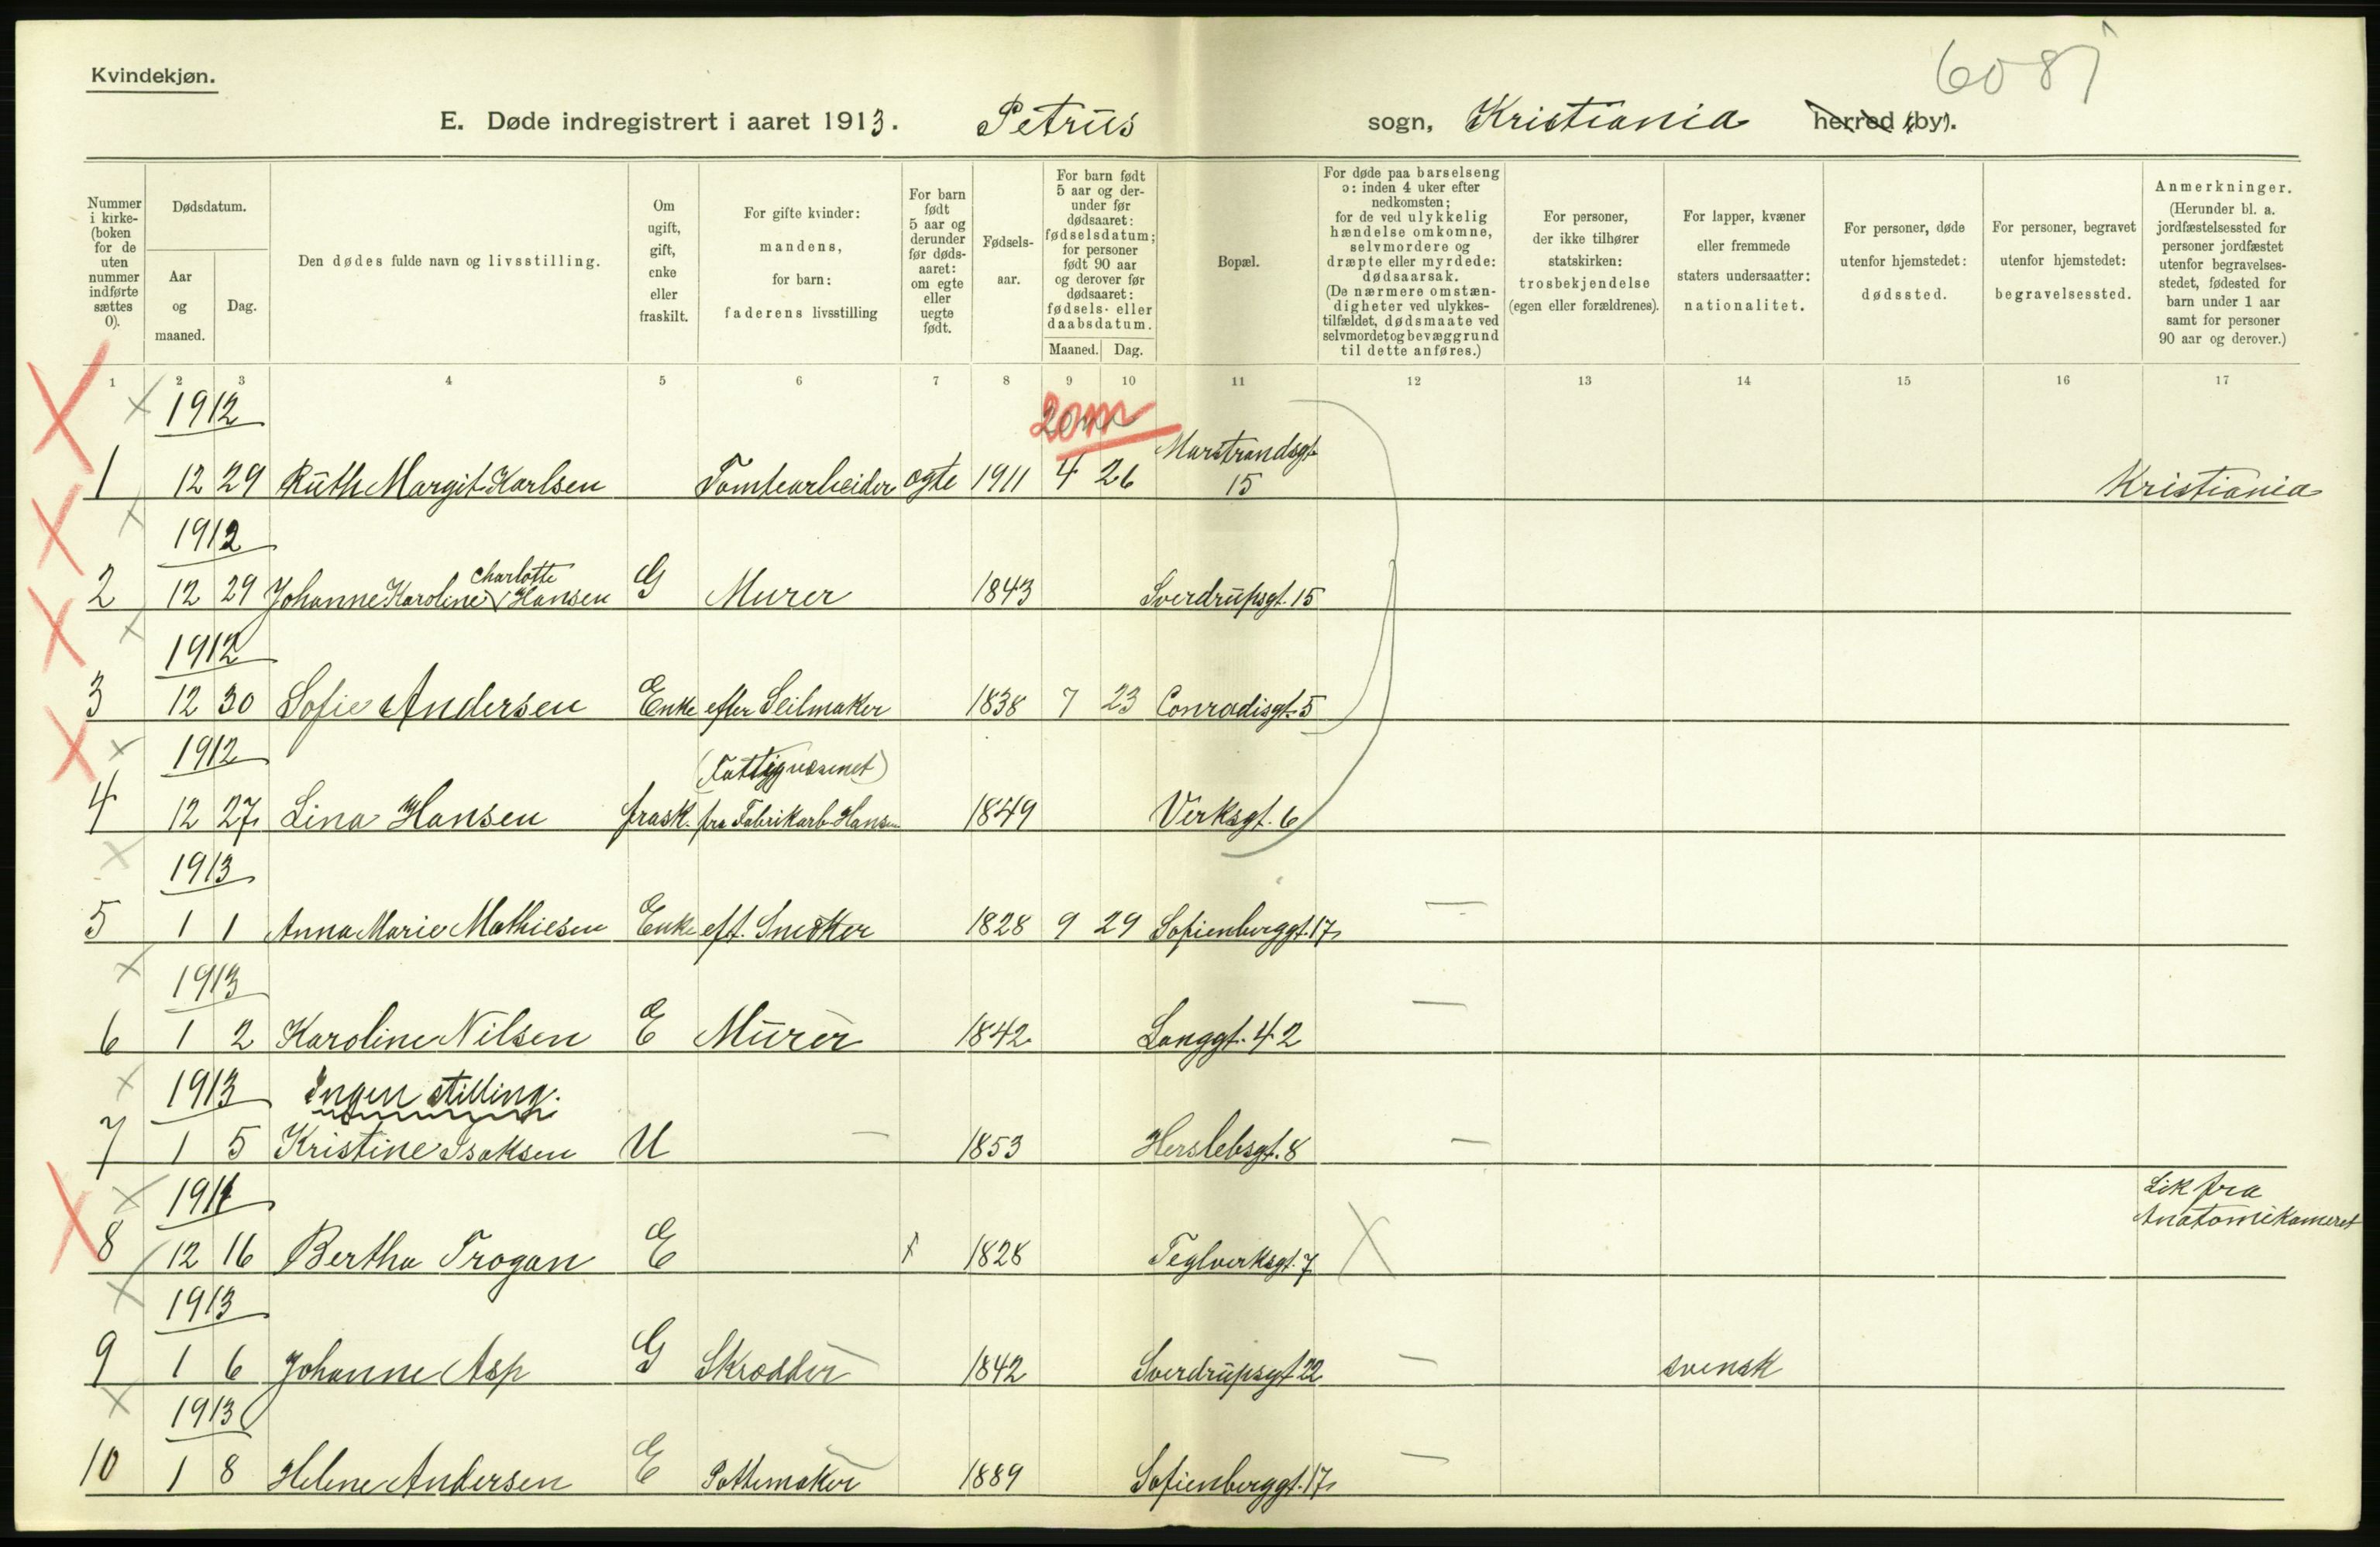 6081
Kvindekjøn.
E. Døde indregistrert i aaret 1913. Petrus sogn, Kristiania herred (by).
Nummer i kirke-(boken for de uten nummer indførte sættes 0).
Dødsdatum.
Aar og maaned.
Dag.
Den dødes fulde navn og livsstilling.
Om ugift, gift, enke eller fraskilt.
For gifte kvinder: mandens, for barn: faderens livsstilling
For barn født 5 aar og derunder før døds-aaret: om egte eller uegte født.
Fødsels-aar.
For barn født 5 aar og der-under før dødsaaret: fødselsdatum; for personer født 90 aar og derover før dødsaaret: fødsels- eller daabsdatum.
Maaned. Dag.
Bopæl.
For døde paa barselseng ɔ: inden 4 uker efter nedkomsten; for de ved ulykkelig hændelse omkomne, selvmordere og dræpte eller myrdede: dødsaarsak. (De nærmere omstæn-digheter ved ulykkes-tilfældet, dødsmaate ved selvmordet og bevæggrund til dette anføres.)
For personer, der ikke tilhører statskirken: trosbekjendelse (egen eller forældrenes).
For lapper, kvæner eller fremmede staters undersaatter: nationalitet.
For personer, døde utenfor hjemstedet: dødssted.
For personer, begravet utenfor hjemstedet: begravelsessted.
Anmerkninger. (Herunder bl. a. jordfæstelsessted for personer jordfæstet utenfor begravelses-stedet, fødested for barn under 1 aar samt for personer 90 aar og derover.)
1 2 3 4 5 6 7 8 9 10 11 12 13 14 15 16 17
1912 20m
1 12 29 Ruth Margit Karlsen Tomtearbeider egte 1911 4 26 Marstrandsgt. 15 Kristiania
1912
2 12 29 Johanne Karoline Charlotte Hansen G Murer 1843 Sverdrupsgt. 15
1912
3 12 30 Sofie Andersen Enke efter Seilmaker 1838 7 23 Conradisgt. 5
1912 (Fattigvæsenet)
4 12 27 Lina Hansen frask. fra Fabrikarb. Hansen 1849 Verksgt. 6
1913
5 1 1 Anna Marie Mathiesen Enke eft. Snekker 1828 9 29 Sofienberggt. 17 —
1913
6 1 2 Karoline Nilsen E Murer 1842 Langgt. 42 —
1913 Ingen stilling.
7 1 5 Kristine Isaksen U — 1853 Herslebsgt. 8 —
1911 Lik fra Anatomikameret
8 12 16 Bertha Trogan E 1828 Teglverksgt. 7
1913
9 1 6 Johanne Asp G Skrædder 1842 Sverdrupsgt 22 — svensk
1913
10 1 8 Helene Andersen E Pottemaker 1889 Sofienberggt. 17 —